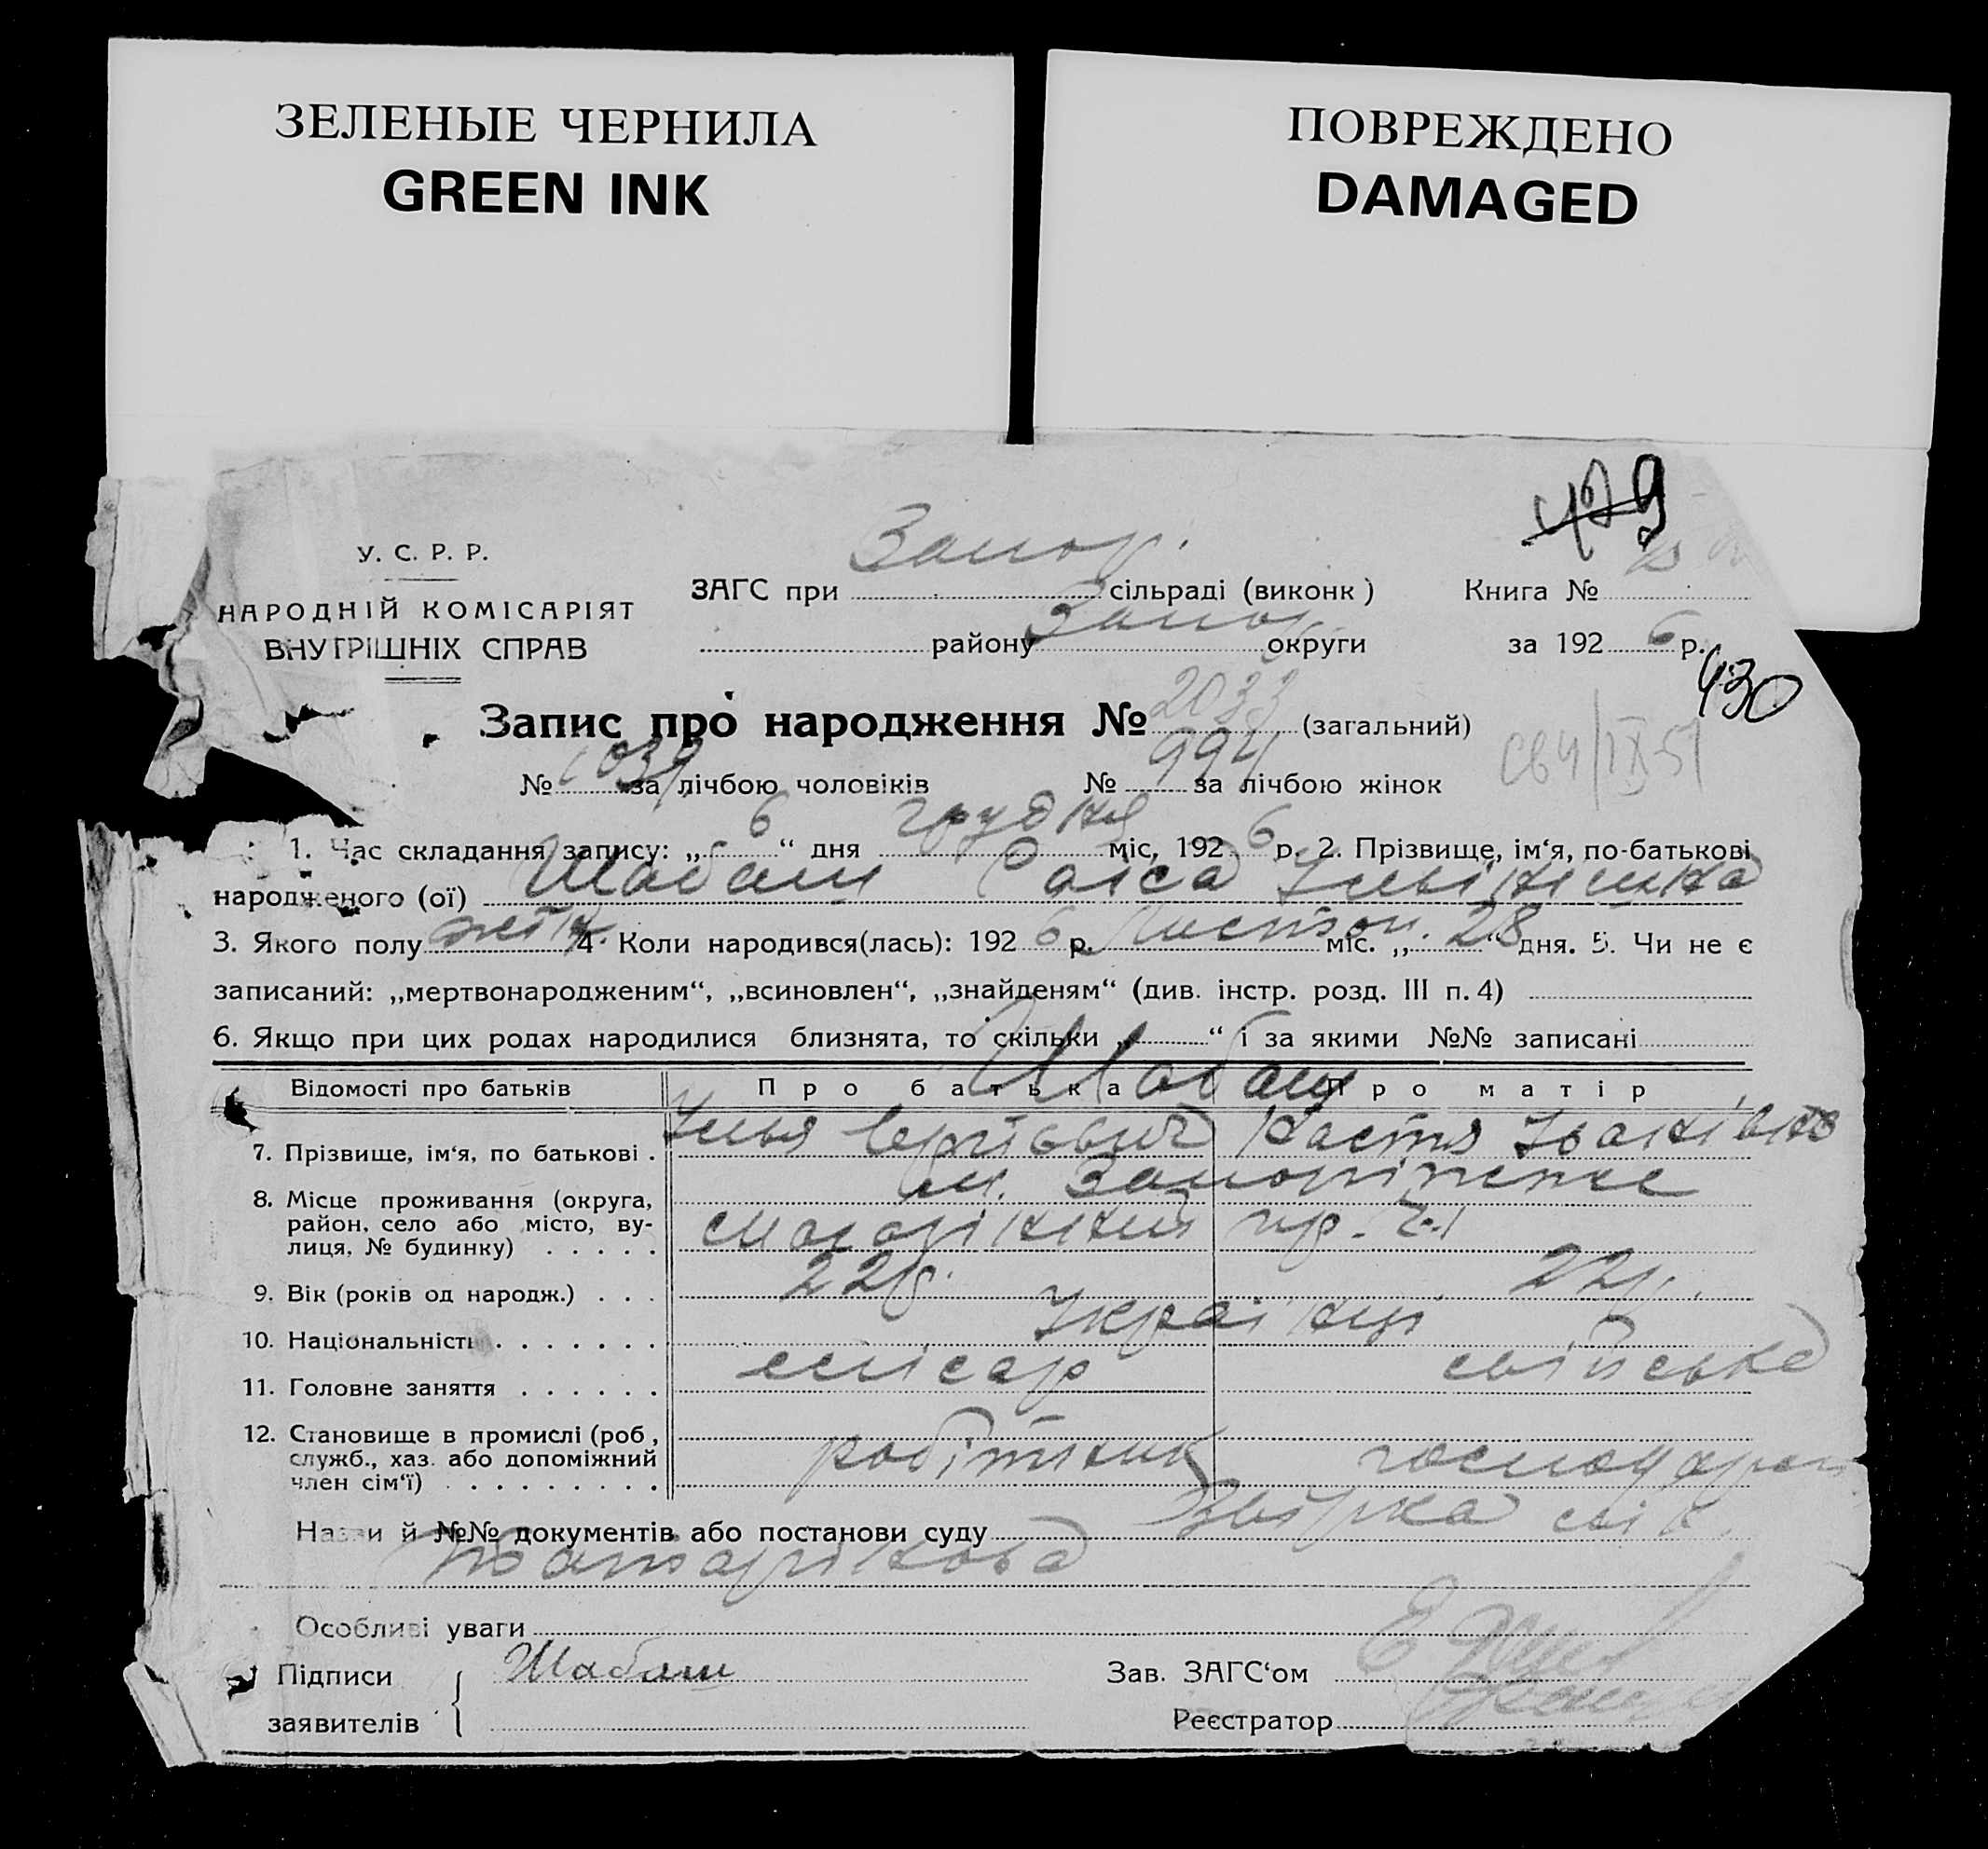 ЗЕЛЕНЫЕ ЧЕРНИЛА
GREEN INK
ПОВРЕЖДЕНО
DAMAGED
479
У. С. Р. Р.
НАРОДНІЙ КОМІСАРІЯТ
ВНУТРІШНІХ СПРАВ
ЗАГС при Запор. сільраді (виконк)
Книга №
району Запор округи
за 1926 р.
430
Запис про народження № 2033 (загальний)
№ 1039 за лічбою чоловіків № 994 за лічбою жінок
1. Час складання запису: „6“ дня грудня міс, 1926 р. 2. Прізвище, ім‘я, по-батькові
народженого (ої) Шабаш Раіса Іллівна
3. Якого полу жін. 4. Коли народився(лась): 1926 р. Листоп. міс. „28“ дня. 5. Чи не є
записаний: „мертвонародженим“, „всиновлен“, „знайденям“ (див. інстр. розд. III п. 4)
6. Якщо при цих родах народилися близнята, то скільки „ “ і за якими №№ записані
Шабаш
Відомості про батьків Про батька Про матір
7. Прізвище, ім‘я, по батькові . Ілья Сергієвич Настя Іванівна
8. Місце проживання (округа, м. Запоріжжє
район, село або місто, ву-
лиця, № будинку) . . . . .
9. Вік (років од народж.) . . . 22 р. 22 р.
10. Національність . . . . . . . Українці
11. Головне заняття . . . . . . слісар
12. Становище в промислі (роб,
служб., хаз. або допоміжний
член сім‘ї) . . . . . . . . . робітник
Назви й №№ документів або постанови суду
Особливі уваги
Підписи Шабаш
заявителів
Зав. ЗАГС‘ом
Реєстратор